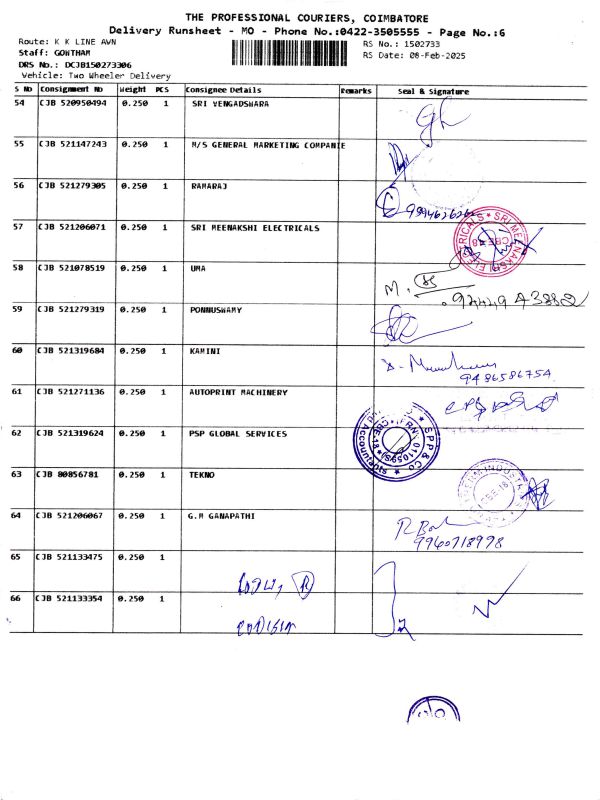 THE PROFESSIONAL COURIERS, COIMBATORE
Delivery Runsheet - MO - Phone No.:0422-3505555 - Page No.:6
Route: K K LINE AWN
RS No.: 1502733
Staff: GOWTHAM
RS Date: 08-Feb-2025
DRS No.: DCJB150273306
Vehicle: Two Wheeler Delivery
S No Consignment No Weight PCS Consignee Details Remarks Seal & Signature
54 CJB 520950494 0.250 1 SRI VENGADSWARA
55 CJB 521147243 0.250 1 M/S GENERAL MARKETING COMPANIE
56 CJB 521279305 0.250 1 RAMARAJ
57 CJB 521206071 0.250 1 SRI MEENAKSHI ELECTRICALS
SRI MEENAKSHI ELECTRICALS
CBE-18
58 CJB 521078519 0.250 1 UMA
M.
9444943882
59 CJB 521279319 0.250 1 PONNUSWAMY
60 CJB 521319684 0.250 1 KAMINI
9486586754
61 CJB 521271136 0.250 1 AUTOPRINT MACHINERY
62 CJB 521319624 0.250 1 PSP GLOBAL SERVICES
SPP & Co
Accountants
63 CJB 80856781 0.250 1 TEKNO
CBE-18
64 CJB 521206067 0.250 1 G.M GANAPATHI
9960718998
65 CJB 521133475 0.250 1
66 CJB 521133354 0.250 1